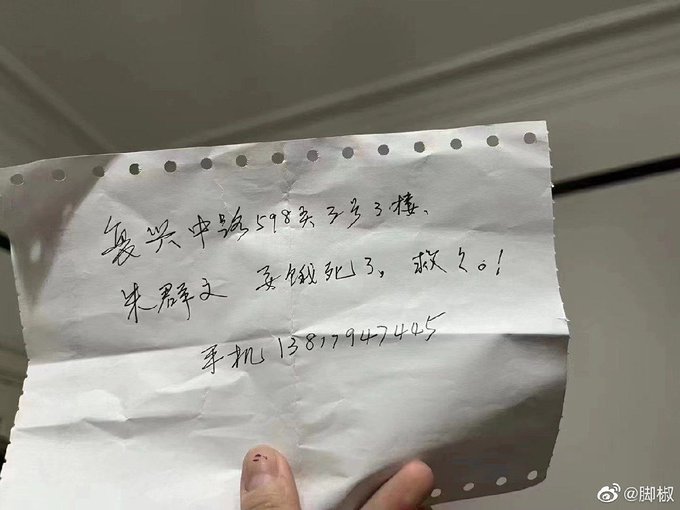 复兴中路598弄3号3楼、
朱群文 要饿死了。救人。!
手机 13817947445
@脚椒